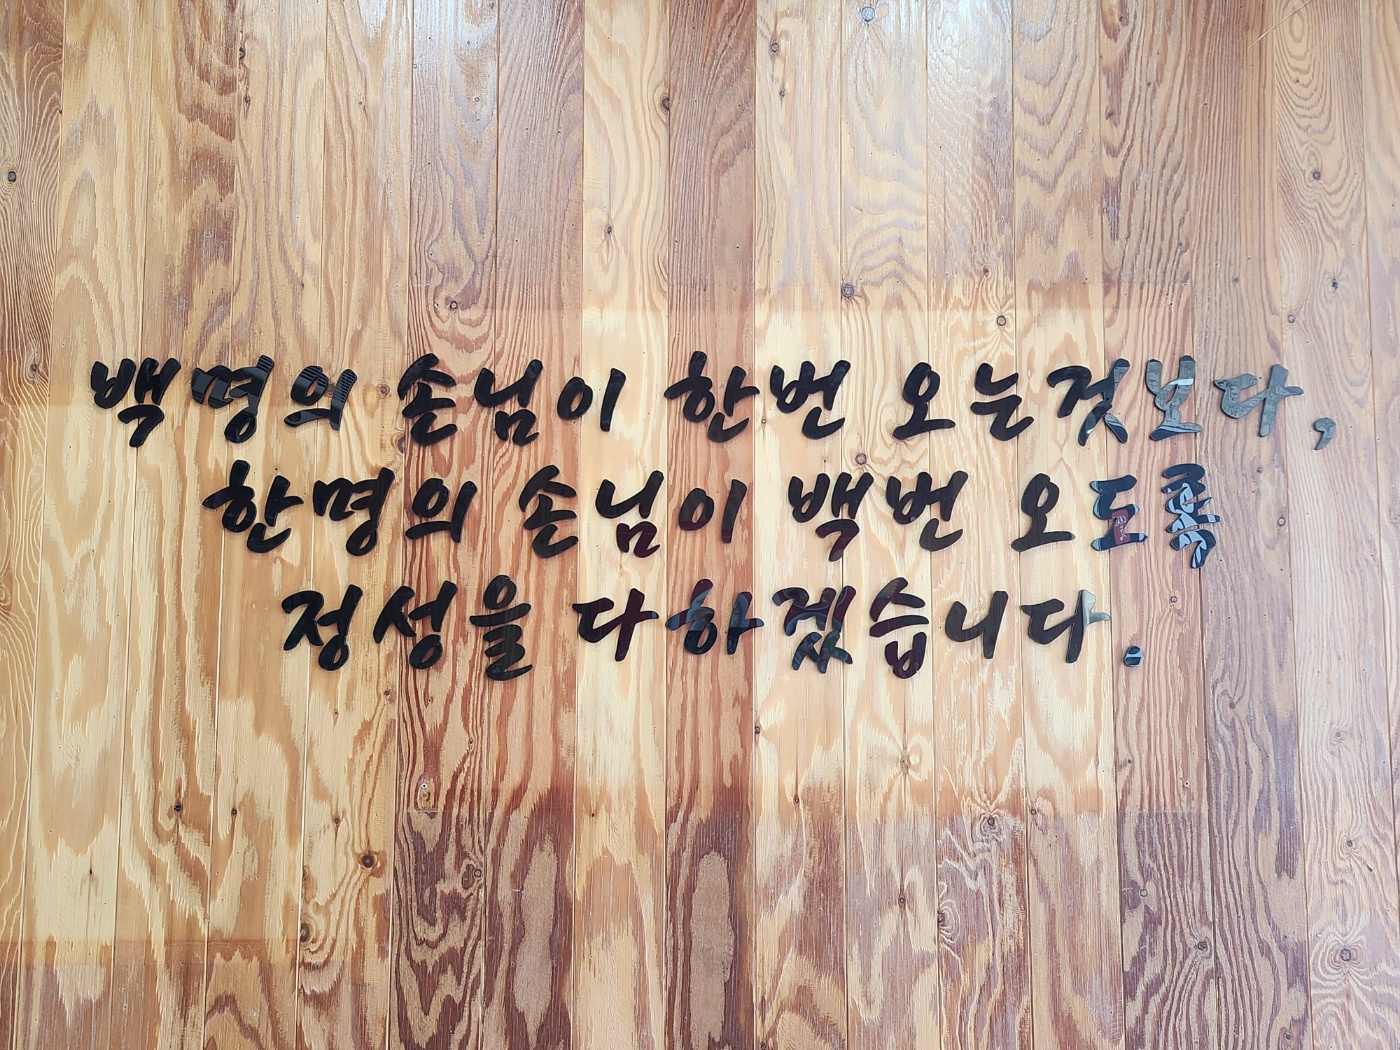 백명의 손님이 한번 오는것보다,
한명의 손님이 백번 오도록
정성을 다하겠습니다.